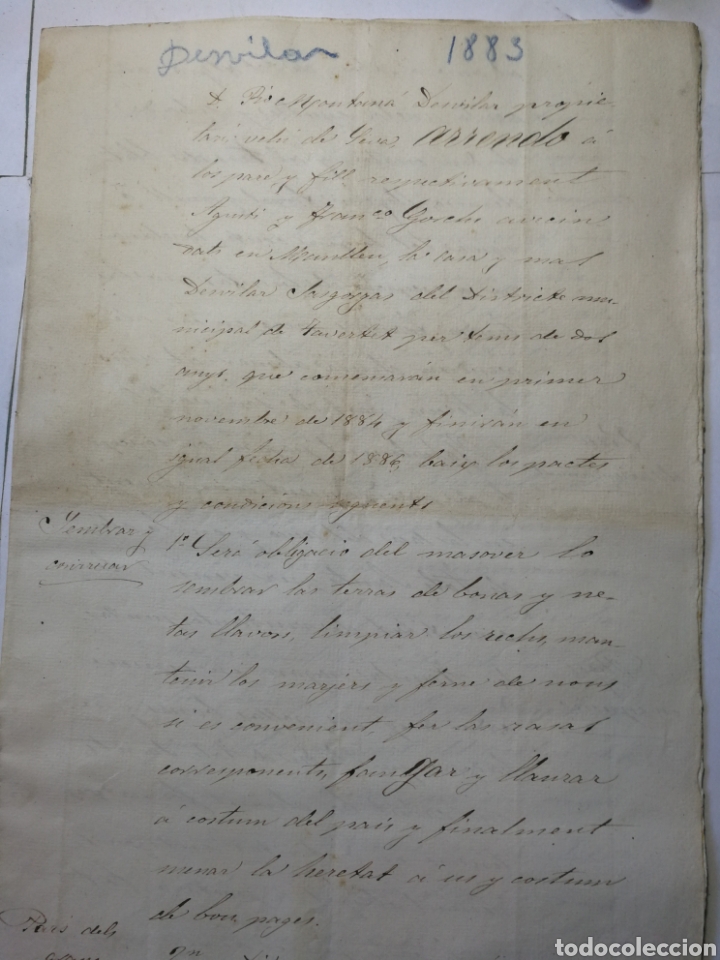 Desvilar 1883
D. Pio Montaná Desvilar propie-
tari vehi de arrendo á
los pare y fill respectivament
Agustí y Franco avein
dats en Manlleu, la casa y mas
Desvilar Sasgorgas del Districte mu-
nicipal de Tavertet per tems de dos
anys, que comensarán en primer
novembre de 1884 y finirán en
igual fecha de 1886, baix los pactes
y condicions seguents
Sembrar y
conresar
1r Será obligació del masover lo
sembrar las terras de bonas y ne-
tas llavors, limpiar los rechs, man-
tenir los marjes y ferne de nous
si es convenient, fer las rasas
corresponents, y llaurar
á costum del pais y finalment
menar la heretat á us y costum
de bon pagés.
Pars dels
2n
todocoleccion